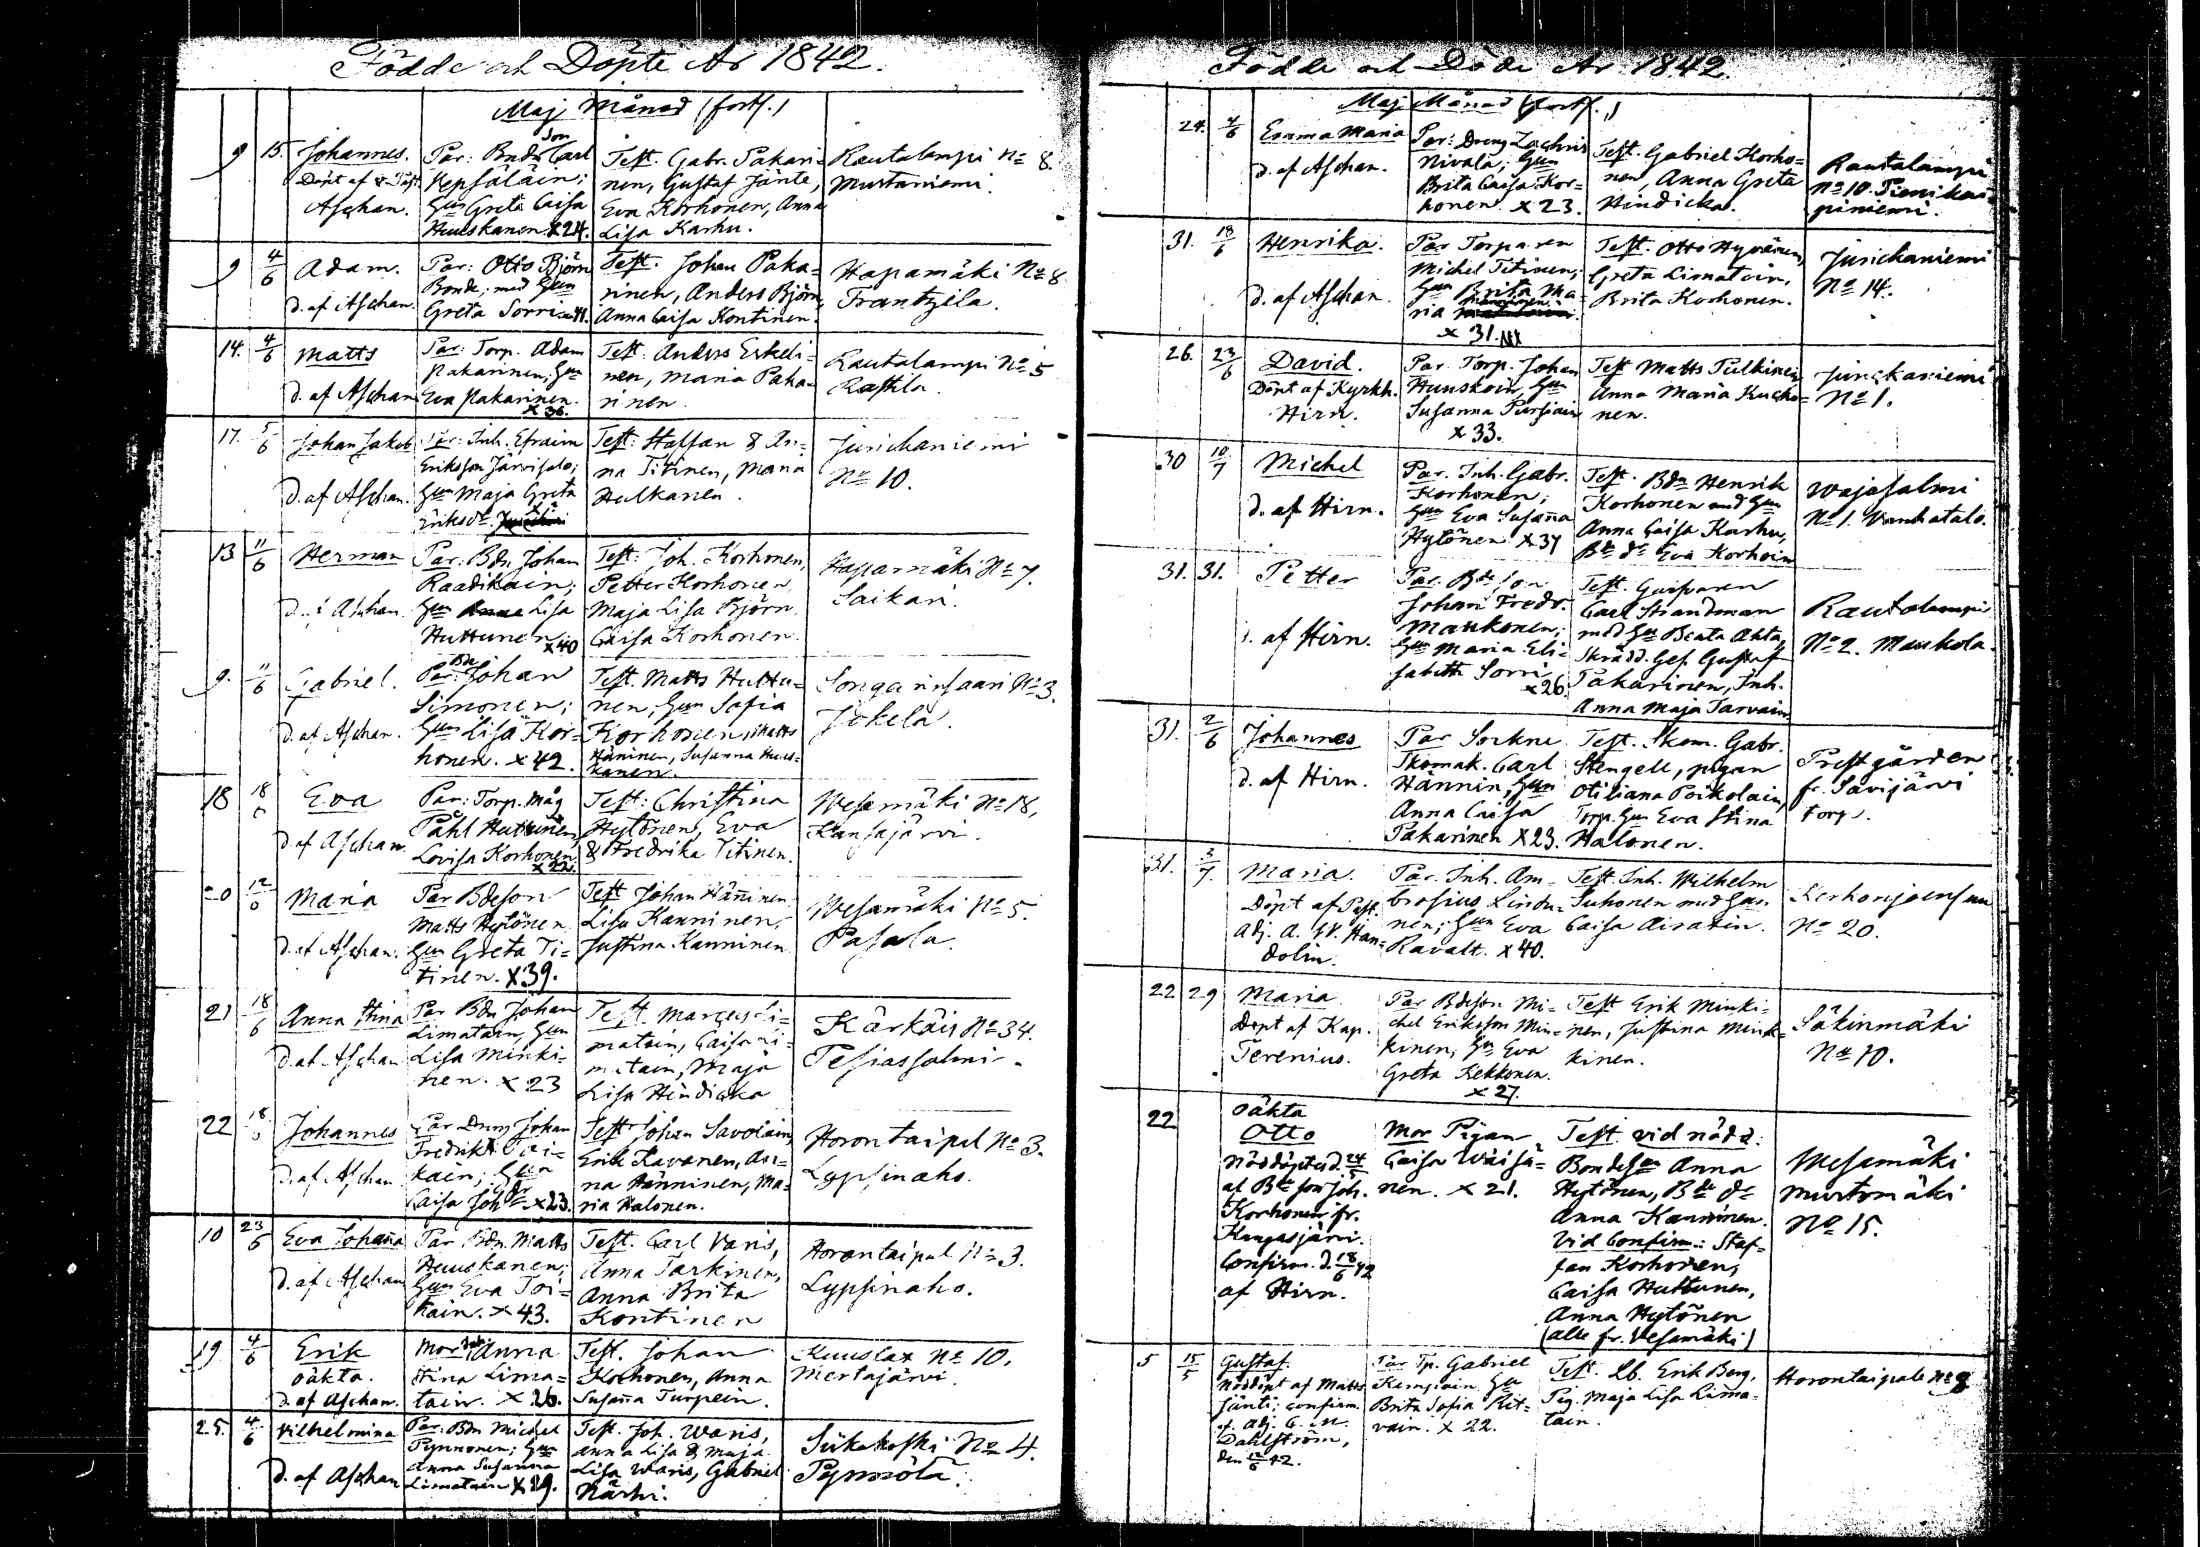 Födde och Döpte År 1842.
Maj Månad (forts.)
9 15. Johannes.
Döpt af v. Past.
Aschan.
Par: Bndeson Carl
Hepsäläin;
Hun Greta Caisa
Huuskanen. x 24.
Test. Gabr. Pakari-
nen, Gustaf Jänte,
Eva Korhonen, Anna
Lisa Karhu.
Rautalampi No 8.
Mustaniemi.
9 4/6 Adam.
d. af Aschan.
Par: Otto Björn
Bonde; med Hun
Greta Sorri x 41.
Test. Johan Paka-
rinen, Anders Björn,
Anna Caisa Kontinen.
Hapamäki No 8
Frantzila.
14. 4/6 Matts
d. af Aschan
Par: Torp. Adam
Pakarinen; Hun
Eva Pakarinen.
x 36.
Test. Anders Eskeli-
nen, Maria Paka-
rinen.
Rautalampi No 5
Rastila.
17. 5/6 Johan Jakob
d. af Aschan.
Par: Inh. Efraim
Eriksson Järvisalo;
Hun Maja Greta
Eriksdr.
Test: Staffan & An-
na Titinen, Maria
Hulkanen.
Jurickaniemi
No 10.
13 11/6 Herman
d. af Aschan.
Par. Bdn Johan
Raadikain;
Hun Lisa
Huttunen x 40
Test: Joh. Korhonen,
Petter Korhonen,
Maja Lisa Björn,
Caisa Korhonen.
Hapamäki No 7.
Saikari.
9. 11/6 Gabriel.
d. af Aschan.
Par. Bdn Johan
Simonen;
Hun Lisa Kor-
honen. x 42.
Test. Matts Huttu-
nen, Hun Sofia
Korhonen, Matts
Häninen, Susanna Huus-
kanen.
Songarinsaari No 3.
Jokela.
18 18/6 Eva
d. af Aschan
Par: Torp. Måg
Påhl Huttunen,
Lovisa Korhonen
x 22.
Test: Christina
Hytönen, Eva
& Fredrika Titinen.
Wesamäki No 18,
Kansajärvi.
20 12/6 Maria
d. af Aschan.
Par Bdeson
Matts Hytönen
Hun Greta Ti-
tinen. x 39.
Test Johan Hänninen
Lisa Kanninen,
Justina Kanninen
Wesamäki No 5.
Pasala.
21 18/6 Anna Stina
d. af Aschan
Par Bdn Johan
Limatain, Hun
Lisa Minki-
nen. x 23
Test. Marcus Li-
matain, Caisa Li-
matain, Maja
Lisa Hindicka
Kärkäis No 34.
Pesiassalmi.
22 18/6 Johannes
d. af Aschan
Par Dreng Johan
Fredrik
kain; Hun
Caisa Joh dr x 23.
Test. Johan Savolain,
Erik Kavanen, An-
na Hänninen, Ma-
ria Halonen.
Horontaipal No 3.
Lypsinaho.
10 23/6 Eva Johanna
d. af Aschan
Par Bdn Matts
Huuskanen;
Hun Eva Toi-
kain. x 43.
Test. Carl Varis,
Anna Tarkinen,
Anna Brita
Kontinen
Horontaipal No 3.
Lypsinaho.
19 4/6 Erik
oäkta.
d. af Aschan.
Mor Inh. Anna
Stina Lima-
tain. x 26.
Test. Johan
Korhonen, Anna
Susanna Turpein.
Kuuslax No 10.
Mertajärvi.
25. 4/6 Vilhelmina
d. af Aschan
Par. Bdn Michel
Pynnonen; Hun
Anna Susanna
Limatain x 29.
Test. Joh. Waris,
Anna Lisa & Maja
Lisa Waris, Gabriel
Närhi.
Siikakoski No 4.
Pynnölä.
Födde och Döde År 1842.
Maj Månad (forts.)
24. 4/6 Emma Maria
d. af Aschan.
Par: Dreng Zachris
Nivala; Hun
Brita Caisa Kor-
honen. x 23.
Test. Gabriel Korho-
nen, Anna Greta
Hindicka.
Rautalampi
No 10. Pienikaa-
piniemi.
31. 18/6 Henrika.
d. af Aschan.
Par Torparen
Michel Titinen;
Hun Brita Ma-
ria
x 31.
Test. Otto Hyvönen,
Greta Limatain,
Brita Korhonen.
Jurickaniemi
No 14.
26. 23/6 David.
Döpt af Kyrkh.
Hirn.
Par. Torp. Johan
Huuskoin, Hun
Susanna Pursiain
x 33.
Test Matts Pulkinen,
Anna Maria Kucko-
nen.
Jurickaniemi
No 1.
30 10/7 Michel
d. af Hirn.
Par. Inh. Gabr.
Korhonen;
Hun Eva Susanna
Hytönen x 37
Test. Bdn Henrik
Korhonen med Hun
Anna Caisa Karhu,
Bde dr Eva Korhoin
Wajasalmi
No 1. Vanhatalo.
31. 31. Petter
d. af Hirn.
Par. Bdeson
Johan Fredr.
Maukonen;
Hun Maria Eli-
sabeth Sorri
x 26.
Test. Gusparen
Carl Strandman
med Hu Beata Ahta,
Skrädd. Ges. Gustaf
Pakarinen, Inh.
Anna Maja Tarvain
Rautalampi
No 2. Maukola.
31. 2/6 Johannes
d. af Hirn.
Par Sockne
Skomak. Carl
Hännin, Hun
Anna Caisa
Pakarinen x 23.
Test. Skom. Gabr.
Stengell, pigan
Otiliana Poikolain,
Torp. Hu Eva Stina
Halonen.
Prestgården
fr. Savijärvi
torp.
31. 3/7. Maria.
Döpt af Past.
Adj. A. W. Han-
dolin.
Par. Inh. Am-
brosius Lindu-
nen; Hun Eva
Ravatt. x 40.
Test. Inh. Wilhelm
Suhonen med Hun
Caisa Airatin.
Kerkonjoensuu
No 20.
22 29 Maria
Döpt af Kap.
Terenius.
Par Bdeson Mi-
chel Eriksson Min-
kinen; Hu Eva
Greta Kekkonen.
x 27.
Test Erik Minki-
nen, Justina Mink-
kinen.
Säkinmäki
No 10.
22 oäkta
Otto
Nöddöptes d. 24/5
af Bde son Joh.
Korhonen fr.
Kangasjärvi.
Confirm. d. 18/6 42
af Hirn.
Mor Pigan
Caisa Wäisä-
nen. x 21.
Test. vid nödd:
Bondehun Anna
Hytönen, Bde dr
Anna Kanninen.
Vid Confirm.: Staf-
fan Korhonen,
Caisa Huttunen,
Anna Hytönen
(alle fr. Vesamäki)
Wesamäki
Murtomäki
No 15.
5 15/5 Gustaf.
Nöddöpt af Matts
Jänti; Confirm.
af Adj. C. N.
Dahlström,
den 42.
Par Tp. Gabriel
Kempiain Hu
Brita Sofia Rit-
vain. x 22.
Test. Lb. Erik Berg,
Pig. Maja Lisa Lima-
tain.
Horontaipale No 8